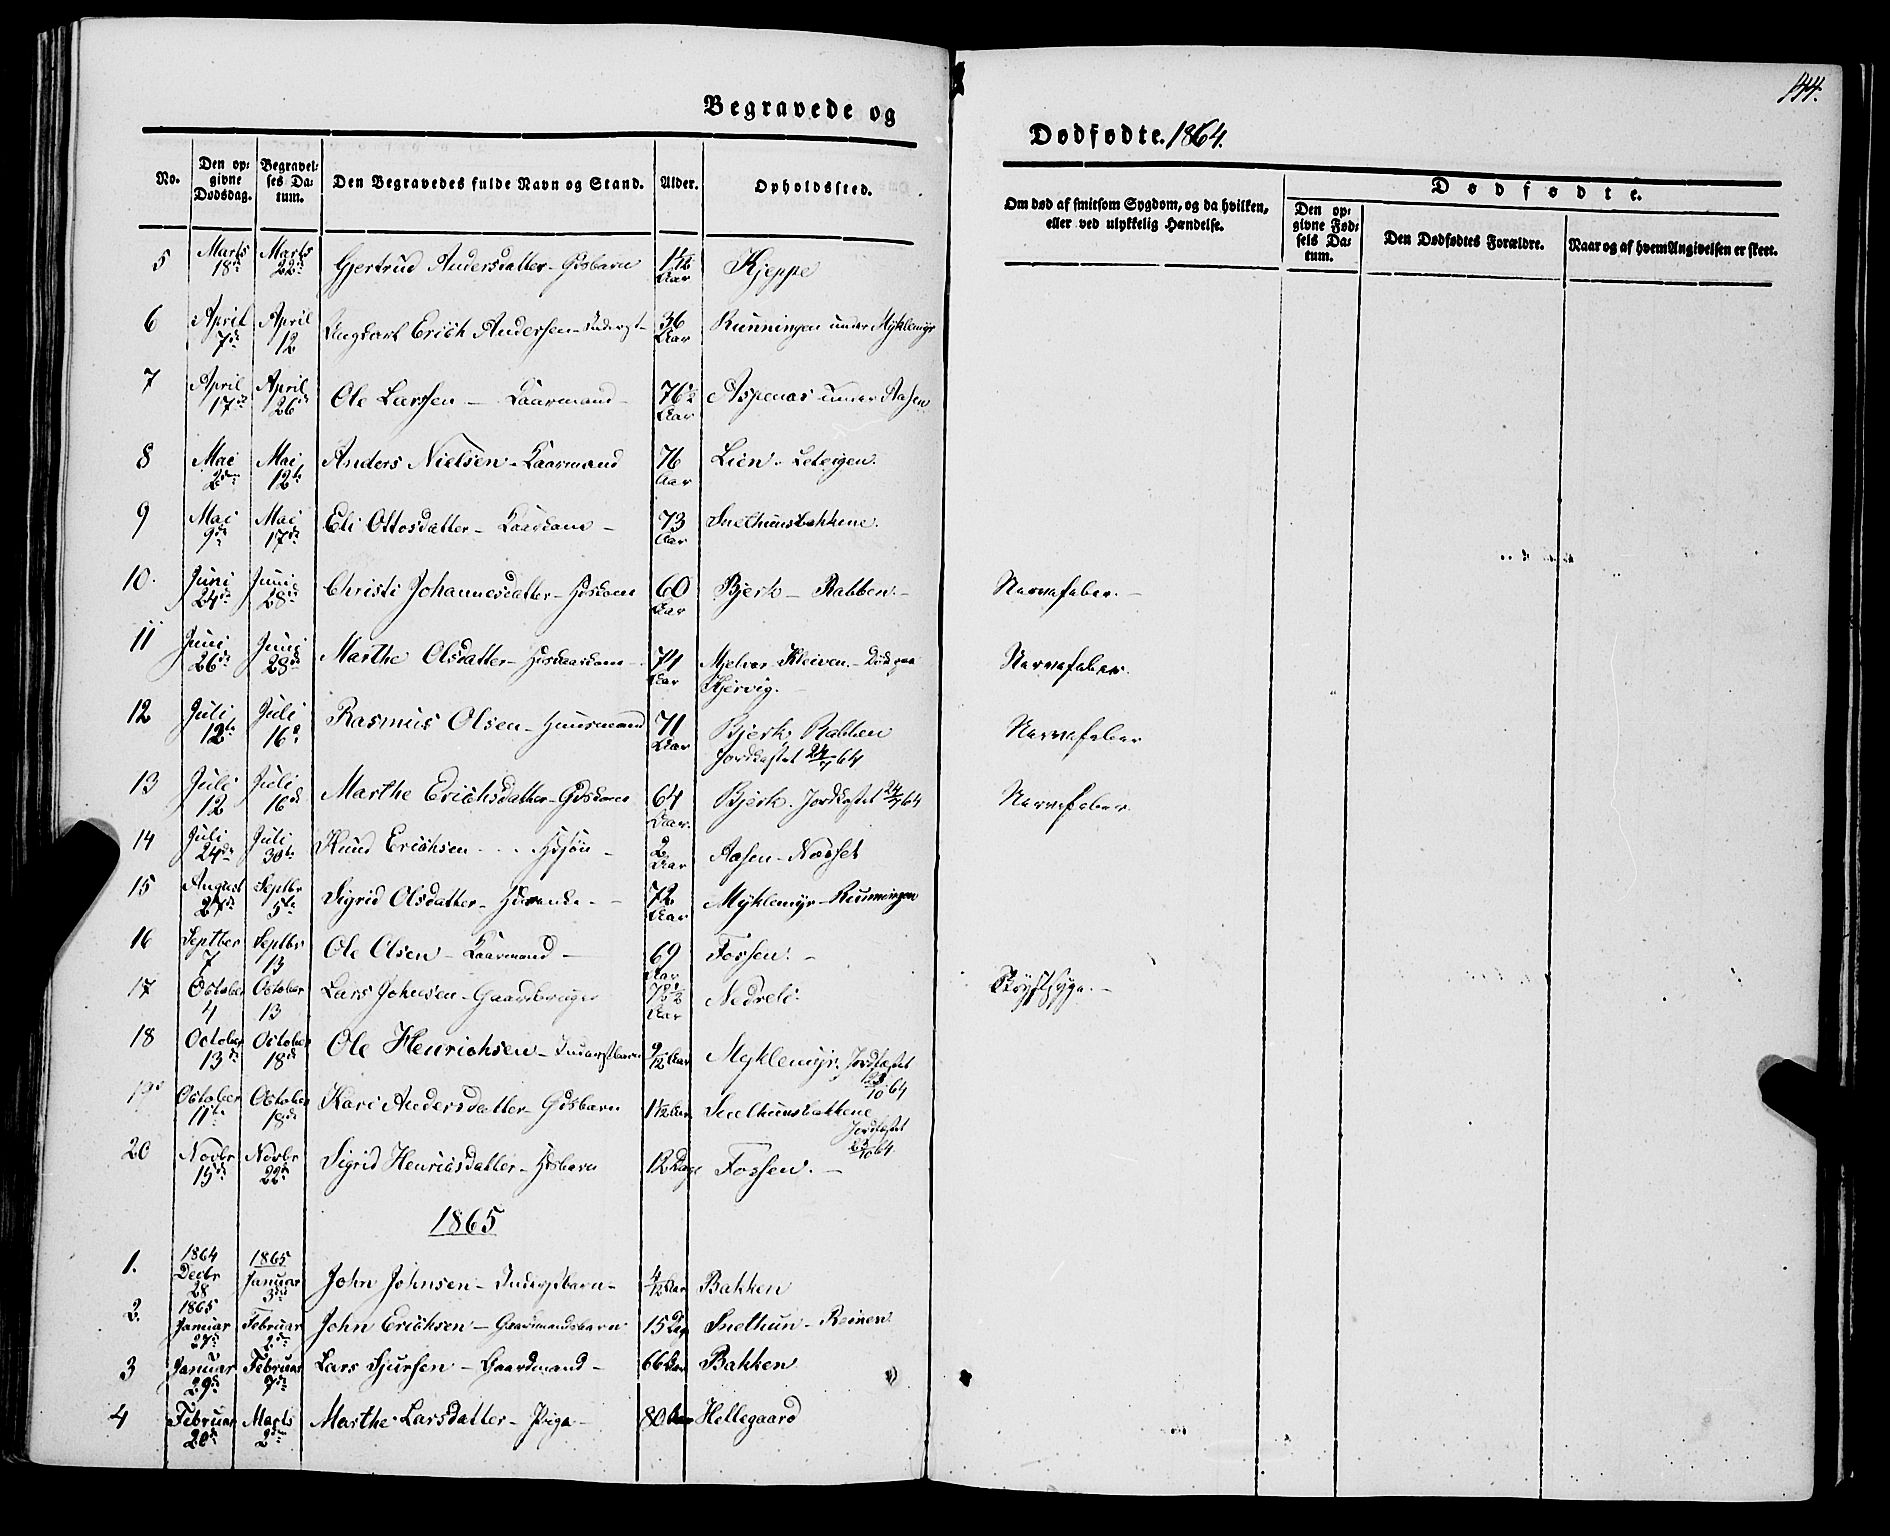 144.
Begravede og
Dødfødte. 1864.
No.
Den op-
givne
Dødsdag.
Begravel-
ses Da-
tum.
Den Begravedes fulde Navn og Stand.
Alder.
Opholdssted.
Om død af smitsom Sygdom, og da hvilken,
eller ved ulykkelig Hændelse.
Dødfødte.
Den op-
givne Fød-
sels Da-
tum.
Den Dødfødtes Forældre.
Naar og af hvem Angivelsen er skeet.
5 Marts 18de Marts 22de Gjertrud Andersdatter - Gdsbarn 1 1/12 Aar Kjeppe
6 April 7de April 12 Ungkarl Erich Andersen - Inderst - 36 Aar Runningen under Myklemyr
7 April 17de April 26de Ole Larssen - Kaarmand - 76 1/2 Aar Aspenæs under Aasen
8 Mai 2den Mai 12te Anders Nielsen - Kaarmand 76 Aar Lien - Leteigen.
9 Mai 9de Mai 17de Eli Ottosdatter - Kaardame - 73 Aar Snethunsbakkene.
10. Juni 24de Juni 28de Christi Johannesdatter - Huskone 60 Aar Bjerk - Rabben. - Nervefeber. -
11 Juni 26de Juni 28de Marthe Olsdatter - 74 Aar Mjelvær Kleiven. - Død paa
Kjervig. - Nervefeber.
12 Juli 12te Juli 16de Rasmus Olsen - Huusmand 71 Aar Bjerk Rabben
Jordkastet 24/7 64 Nervefeber
13 Juli 12 Juli 16de Marthe Erichsdatter - Gdskone 64 Aar. Bjerk. Jordkastet 24/7 64 Nervefeber.
14 Juli 24de Juli 30te Knud Erichsen - Hssøn - 2 Aar Aasen - Næsset
15 August 27de Septbr 5te Sigrid Olsdatter - - 72 Aar Myklemyr - Runningen
16 Septber 7 Septbr 13 Ole Olsen - Kaarmand - 69 Aar Fossen. -
17 October 4 October 13 Lars Johnsen - Gaardbruger Aar Nedrelo. Brystsyge. -
18 October 13de October 18de Ole Henrichsen - Inderstbarn 9/12 Aar Myklemyr. Jordfæstet
23/10 64
19 October 11te October 18de Kari Andersdatter - Gdsbarn 1 1/12 Aar Snethunsbakkene
Jordfæstet
23/10 64
20 Novbr 15de Novbr 22de Sigrid Henricsdatter - Hsbarn 12 Dage Fossen. -
1865
1. 1864 Decbr 28 1865 Januar 3die John Johnsen - Inderstbarn - 4/12 Aar Bakken
2. 1865 Januar 27de Februar 2den John Erichsen - Gaardmandsbarn 15 Dage Snethun - Reinen
3 Januar 29de Februar 7de Lars Sjursen - Gaardmand - 66 Aar Bakken
4 Februar 20de Marts 2den Marthe Larsdatter - Pige - 80 Aar Hellegaard